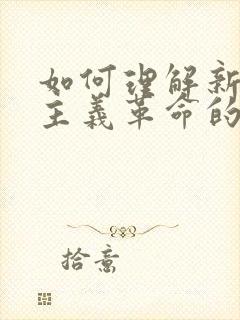 如何理解新
主义革命的
拾意